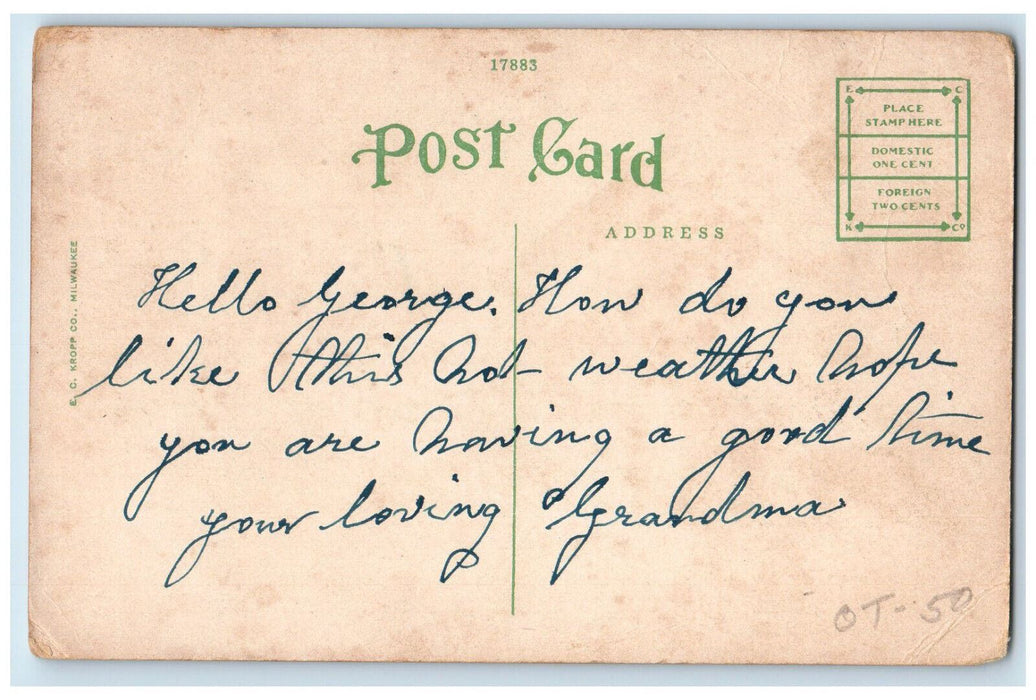 17883
Post Card
ADDRESS
E C
PLACE
STAMP HERE
DOMESTIC
ONE CENT
FOREIGN
TWO CENTS
K Co
E. C. KROPP CO., MILWAUKEE
Hello George. How do you
like this hot weather hope
you are having a good time
your loving Grandma
OT-50